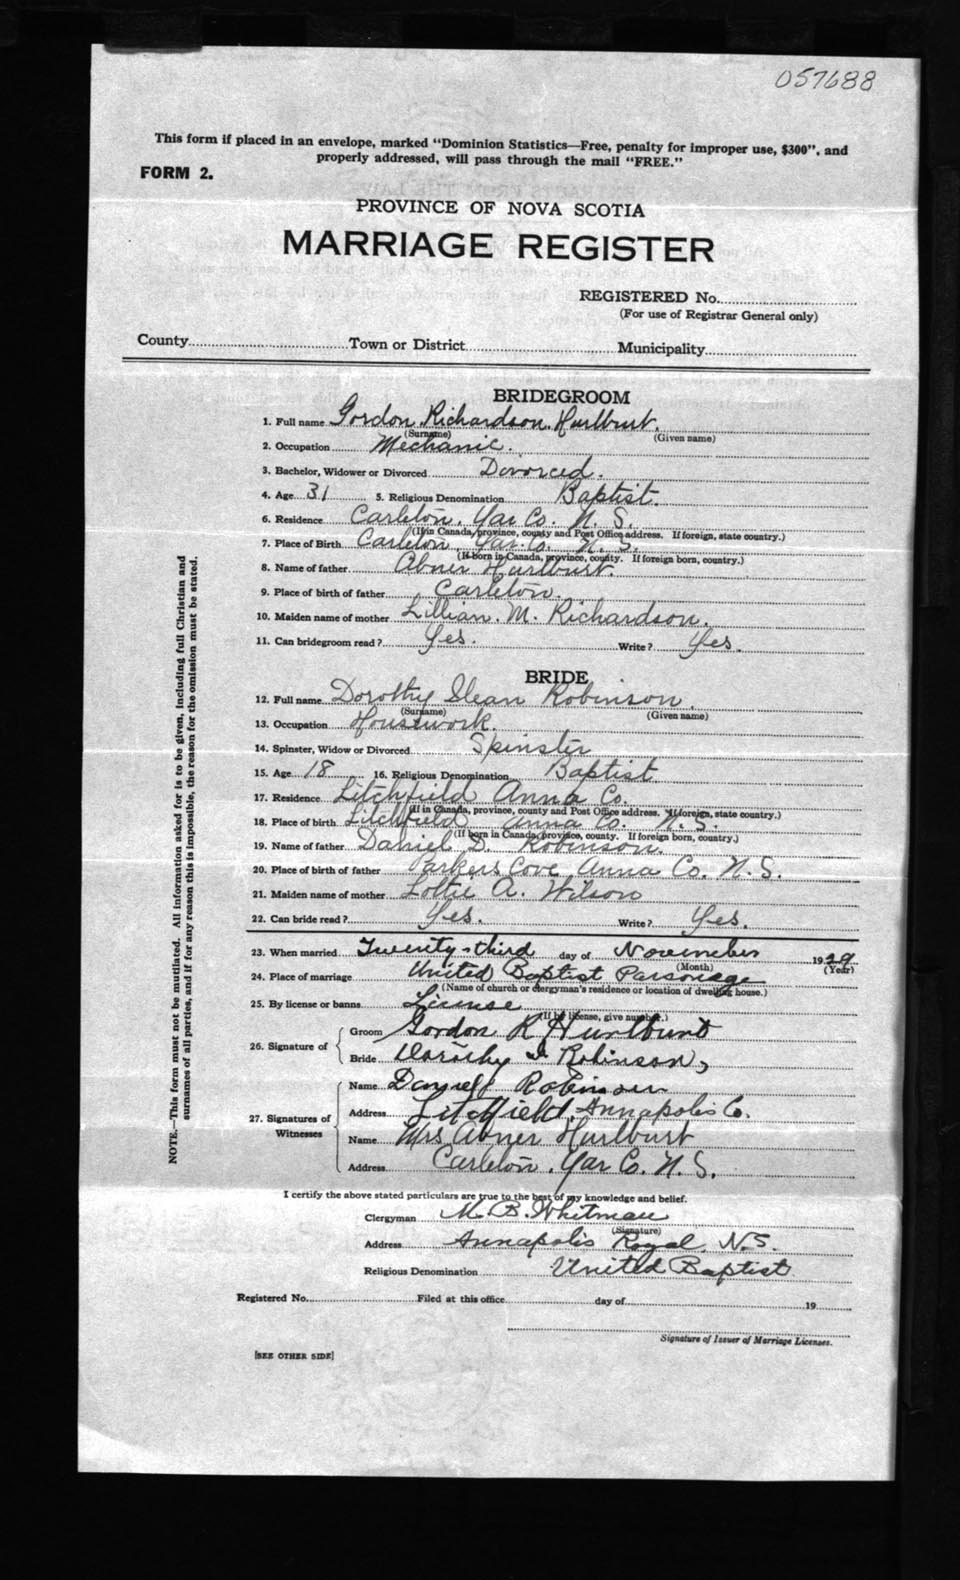 057688
This form if placed in an envelope, marked "Dominion Statistics—Free, penalty for improper use, $300", and
properly addressed, will pass through the mail "FREE."
FORM 2.
PROVINCE OF NOVA SCOTIA
MARRIAGE REGISTER
REGISTERED No.
(For use of Registrar General only)
County Town or District Municipality
BRIDEGROOM
1. Full name Gordon Richardson Hurlburt.
(Surname) (Given name)
2. Occupation Mechanic.
3. Bachelor, Widower or Divorced Divorced.
4. Age 31 5. Religious Denomination Baptist.
6. Residence Carleton, Yar Co. N. S.
(If in Canada, province, county and Post Office address. If foreign, state country.)
7. Place of Birth Carleton, Yar. Co. N. S.
(If born in Canada, province, county. If foreign born, country.)
8. Name of father Abner Hurlburt.
9. Place of birth of father Carleton.
10. Maiden name of mother Lillian. M. Richardson.
11. Can bridegroom read? Yes. Write? Yes.
BRIDE
12. Full name Dorothy Robinson.
(Surname) (Given name)
13. Occupation Housework
14. Spinster, Widow or Divorced Spinster
15. Age 18 16. Religious Denomination Baptist
17. Residence Litchfield Anna Co.
(If in Canada, province, county and Post Office address. If foreign, state country.)
18. Place of birth Litchfield Anna Co. N. S.
(If born in Canada, province, county. If foreign born, country.)
19. Name of father Daniel D. Robinson.
20. Place of birth of father Parkers Cove Anna Co. N. S.
21. Maiden name of mother Lottie A. Wilson
22. Can bride read? Yes. Write? Yes.
23. When married Twenty-third day of November 1929
(Month) (Year)
24. Place of marriage United Baptist Parsonage
(Name of church or clergyman's residence or location of dwelling house.)
25. By license or banns License
(If by license, give number.)
26. Signature of Groom Gordon R Hurlburt
Bride Dorothy I Robinson,
27. Signatures of Witnesses Name Robinson
Address Litchfield, Annapolis Co.
Name Mrs Abner Hurlburt
Address Carleton, Yar Co. N. S.
I certify the above stated particulars are true to the best of my knowledge and belief.
Clergyman M. B. Whitman
(Signature)
Address Annapolis Royal, N.S.
Religious Denomination United Baptist
Registered No. Filed at this office day of 19
Signature of Issuer of Marriage Licenses.
[SEE OTHER SIDE]
NOTE.—This form must not be mutilated. All information asked for is to be given, including full Christian and
surnames of all parties, and if for any reason this is impossible, the reason for the omission must be stated.